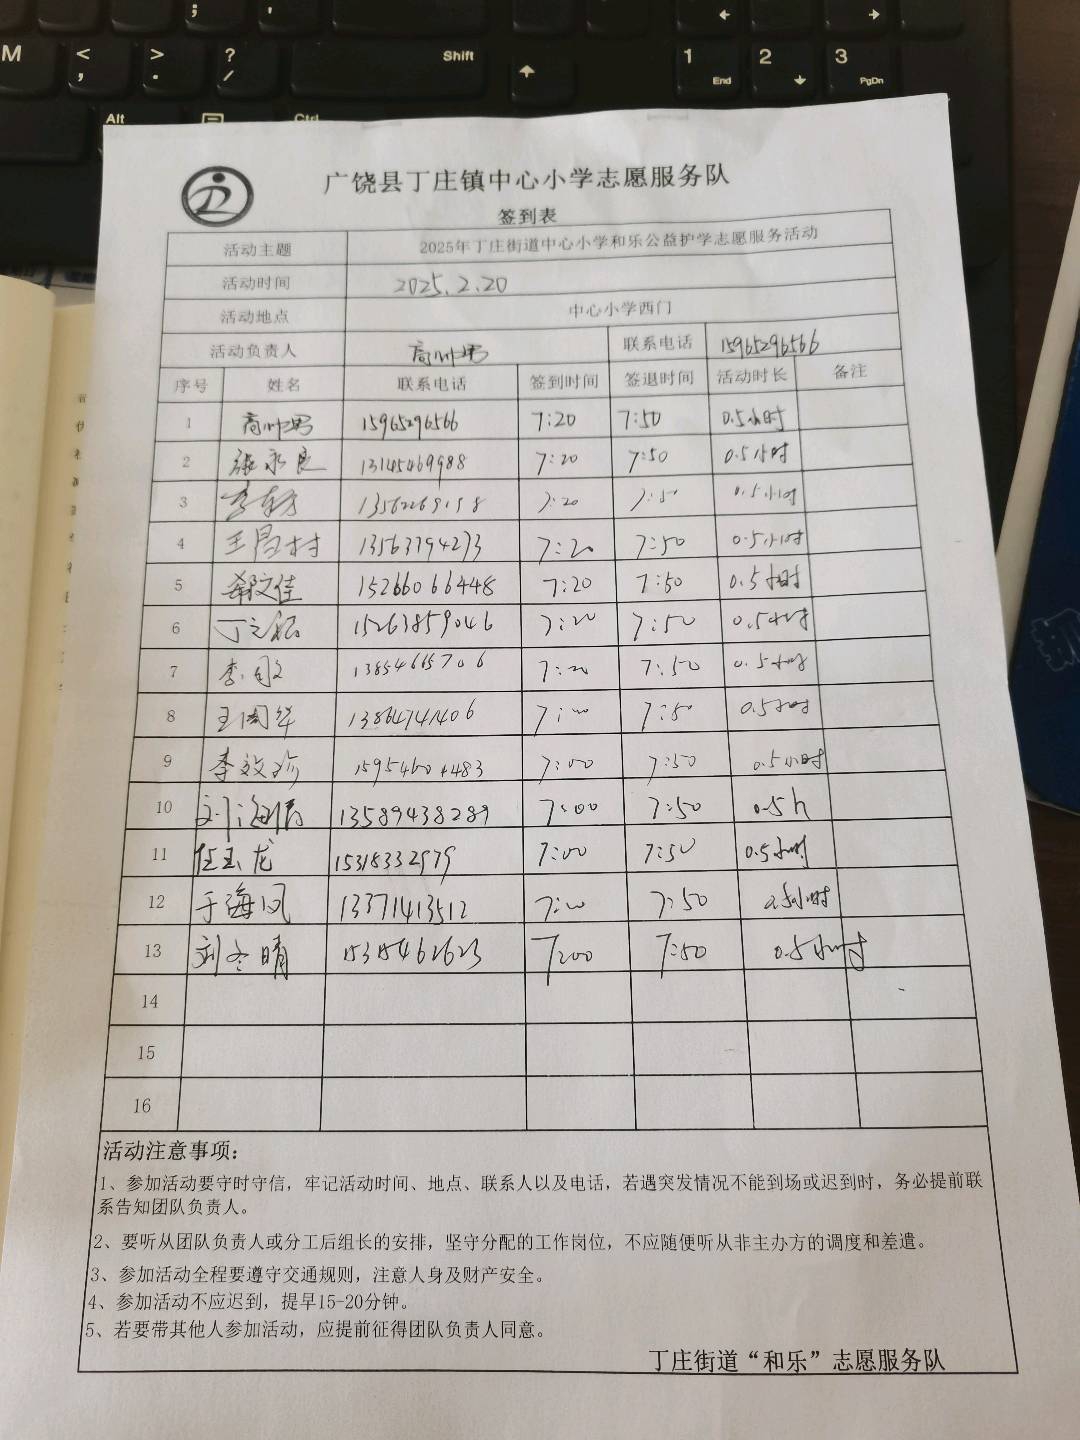 广饶县丁庄镇中心小学志愿服务队
签到表
活动主题 2025年丁庄街道中心小学和乐公益护学志愿服务活动
活动时间 2025.2.20
活动地点 中心小学西门
活动负责人 高帅男 联系电话 15965296566
序号 姓名 联系电话 签到时间 签退时间 活动时长 备注
1 高帅男 15965296566 7:20 7:50 0.5小时
2 张永良 13145469988 7:20 7:50 0.5小时
3 13562269158 7:20 7:50 0.5小时
4 王昌村 13563794273 7:20 7:50 0.5小时
5 郗文佳 15266066448 7:20 7:50 0.5小时
6 15263859046 7:20 7:50 0.5小时
7 李敏 13854665706 7:20 7:50 0.5小时
8 王国华 13864741406 7:00 7:50 0.5小时
9 李效珍 15954604483 7:00 7:50 0.5小时
10 刘海倩 13589438289 7:00 7:50 0.5h
11 任玉龙 15318332979 7:00 7:50 0.5小时
12 于海凤 13371413512 7:00 7:50 0.5小时
13 刘冬晴 15315462623 7:00 7:50 0.5小时
14
15
16
活动注意事项:
1、参加活动要守时守信，牢记活动时间、地点、联系人以及电话，若遇突发情况不能到场或迟到时，务必提前联
系告知团队负责人。
2、要听从团队负责人或分工后组长的安排，坚守分配的工作岗位，不应随便听从非主办方的调度和差遣。
3、参加活动全程要遵守交通规则，注意人身及财产安全。
4、参加活动不应迟到，提早15-20分钟。
5、若要带其他人参加活动，应提前征得团队负责人同意。
丁庄街道“和乐”志愿服务队
M
<
,
>
.
?
/
Shift
1
End
2
3
PgDn
Alt
Ctrl